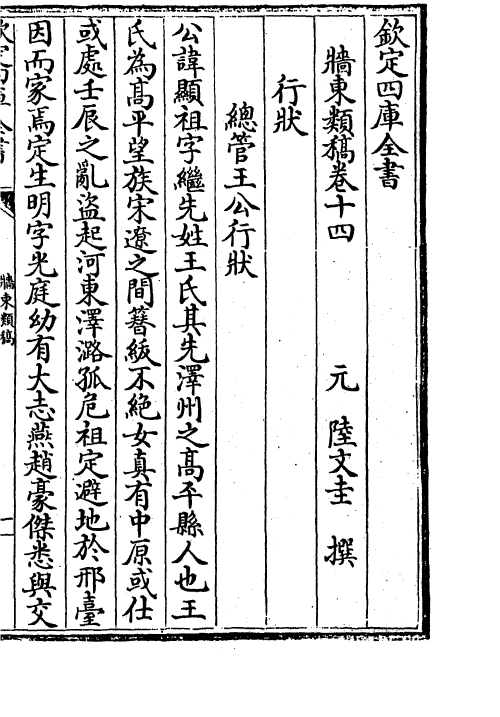 欽定四庫全書
牆東類稿卷十四　元　陸文圭　撰
行狀
總管王公行狀
公諱顯祖字繼先姓王氏其先澤州之髙平縣人也王
氏為髙平望族宋遼之間簪紱不絶女真有中原或仕
或處壬辰之亂盜起河東澤潞孤危祖定避地於邢臺
因而家焉定生明字光庭幼有大志燕趙豪傑悉與交
牆東類稿
一